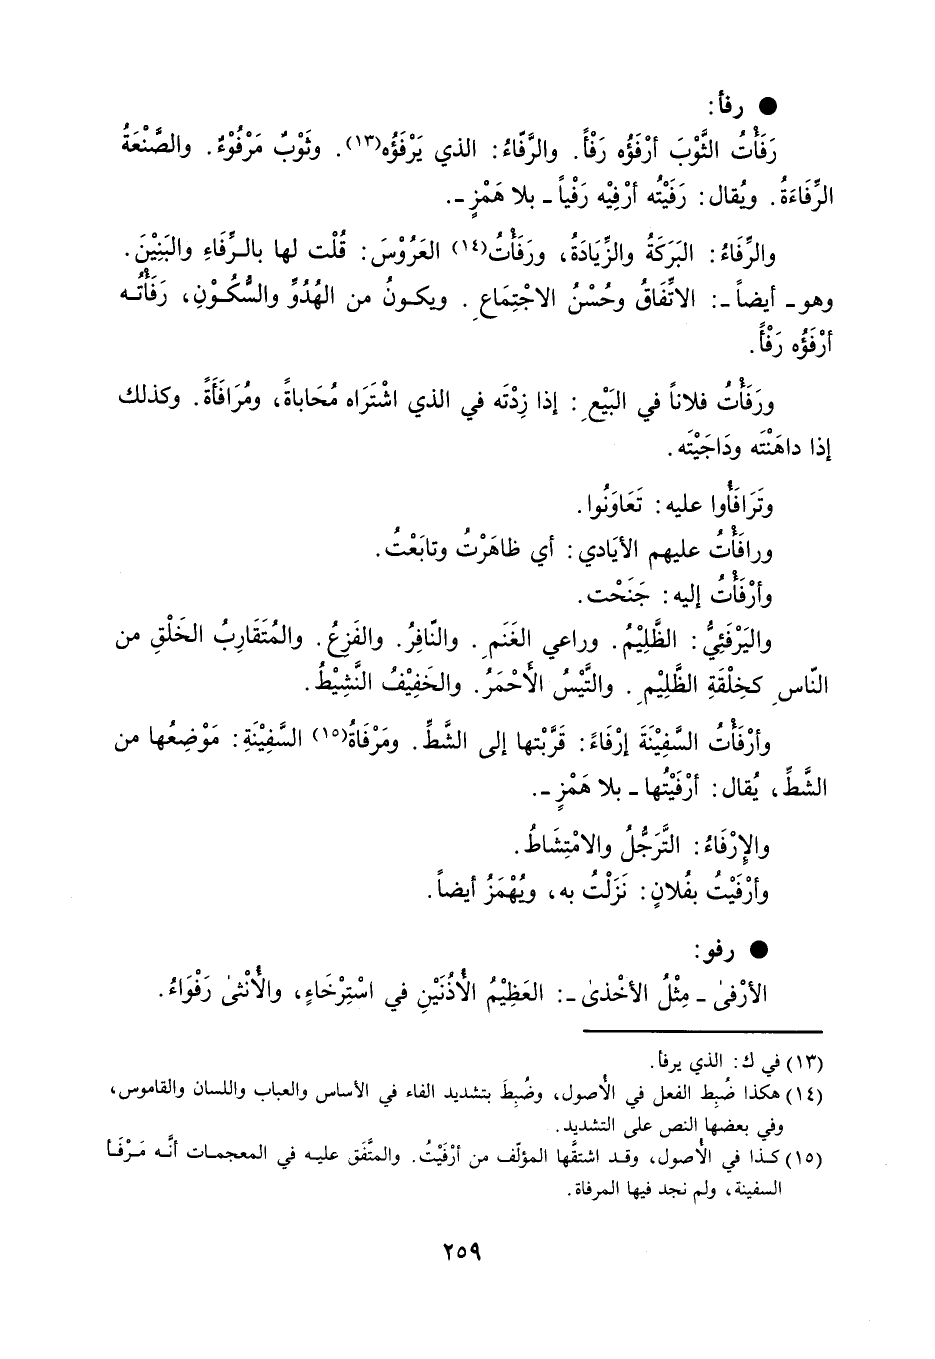 ● رفأ:
رَفَأْتُ الثَّوْبَ أرْفَؤُه رَفْأً. والرَّفّاءُ: الذي يَرْفَؤُه(١٣). وثَوْبٌ مَرْفُوْءٌ. والصَّنْعَةُ
الرِّفَاءَةُ. ويُقال: رَفَيْتُه أرْفِيْه رَفْياً ـ بلا هَمْزٍ ـ.
والرِّفَاءُ: البَرَكَةُ والزِّيَادَةُ، ورَفَأْتُ(١٤) العَرُوْسَ: قُلْت لها بالرِّفَاءِ والبَنِيْنَ.
وهو ـ أيضاً ـ: الاتِّفَاقُ وحُسْنُ الاجْتِمَاعِ. ويكونُ من الهُدُوِّ والسُّكُوْنِ، رَفَأْتُه
أرْفَؤُه رَفْأً.
ورَفَأْتُ فلاناً في البَيْعِ: إذا زِدْتَه في الذي اشْتَرَاه مُحَاباةً، ومُرَافَأَةً. وكذلك
إذا داهَنْتَه ودَاجَيْتَه.
وتَرَافَأُوا عليه: تَعَاوَنُوا.
ورافَأْتُ عليهم الأيَادي: أي ظاهَرْتُ وتابَعْتُ.
وأرْفَأْتُ إليه: جَنَحْت.
واليَرْفَئِيُّ: الظَّلِيْمُ. وراعي الغَنَمِ. والنّافِرُ. والفَزِعُ. والمُتَقَارِبُ الخَلْقِ من
النّاسِ كخِلْقَةِ الظَّلِيْمِ. والتَّيْسُ الأَحْمَرُ. والخَفِيْفُ النَّشِيْطُ.
وأرْفَأْتُ السَّفِيْنَةَ إرْفَاءً: قَرَّبْتها إلى الشَّطِّ. ومَرْفَاةُ(١٥) السَّفِيْنَةِ: مَوْضِعُها من
الشَّطِّ، يُقال: أرْفَيْتُها ـ بلا هَمْزٍ ـ.
والإِرْفَاءُ: التَّرَجُّلُ والامْتِشَاطُ.
وأرْفَيْتُ بفُلانٍ: نَزَلْتُ به، ويُهْمَزُ أيضاً.
● رفو:
الأرْفىٰ ـ مِثْلُ الأخْذىٰ ـ: العَظِيْمُ الأُذُنَيْنِ في اسْتِرْخَاءٍ، والأُنْثىٰ رَفْوَاءُ.
(١٣) في ك: الذي يرفأ.
(١٤) هكذا ضُبِط الفعل في الأصول، وضُبِطَ بتشديد الفاء في الأساس والعباب واللسان والقاموس،
وفي بعضها النص على التشديد.
(١٥) كذا في الأصول، وقد اشتقَّها المؤلّف من أرْفَيْتُ. والمتَّفق عليه في المعجمات أنَّه مَرْفَأ
السفينة، ولم نجد فيها المرفاة.
٢٥٩